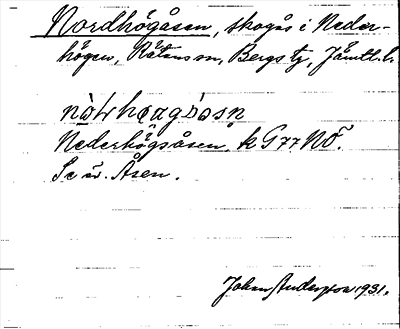 Nordhögåsen, skogås i Neder-
högen, Rätans sn, Bergs tg, Jämtl. l.
Nederhögsåsen, k G 77 NÖ.
Se äv. Åsen.
Johan Andersson 1931.